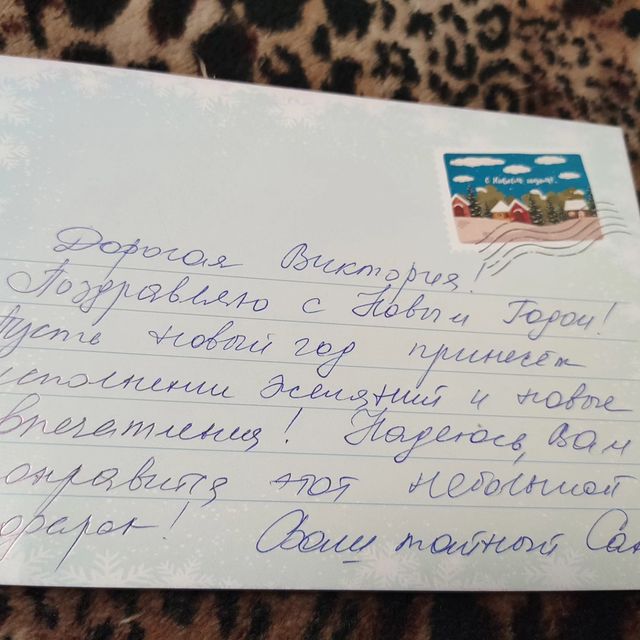 с Новым годом!
Дорогая Виктория!
Поздравляю с Новым Годом!
Пусть новый год принесёт
исполнении желаний и новые
впечатления! Надеюсь, Вам
понравится этот небольшой
подарок! Ваш тайный Сан